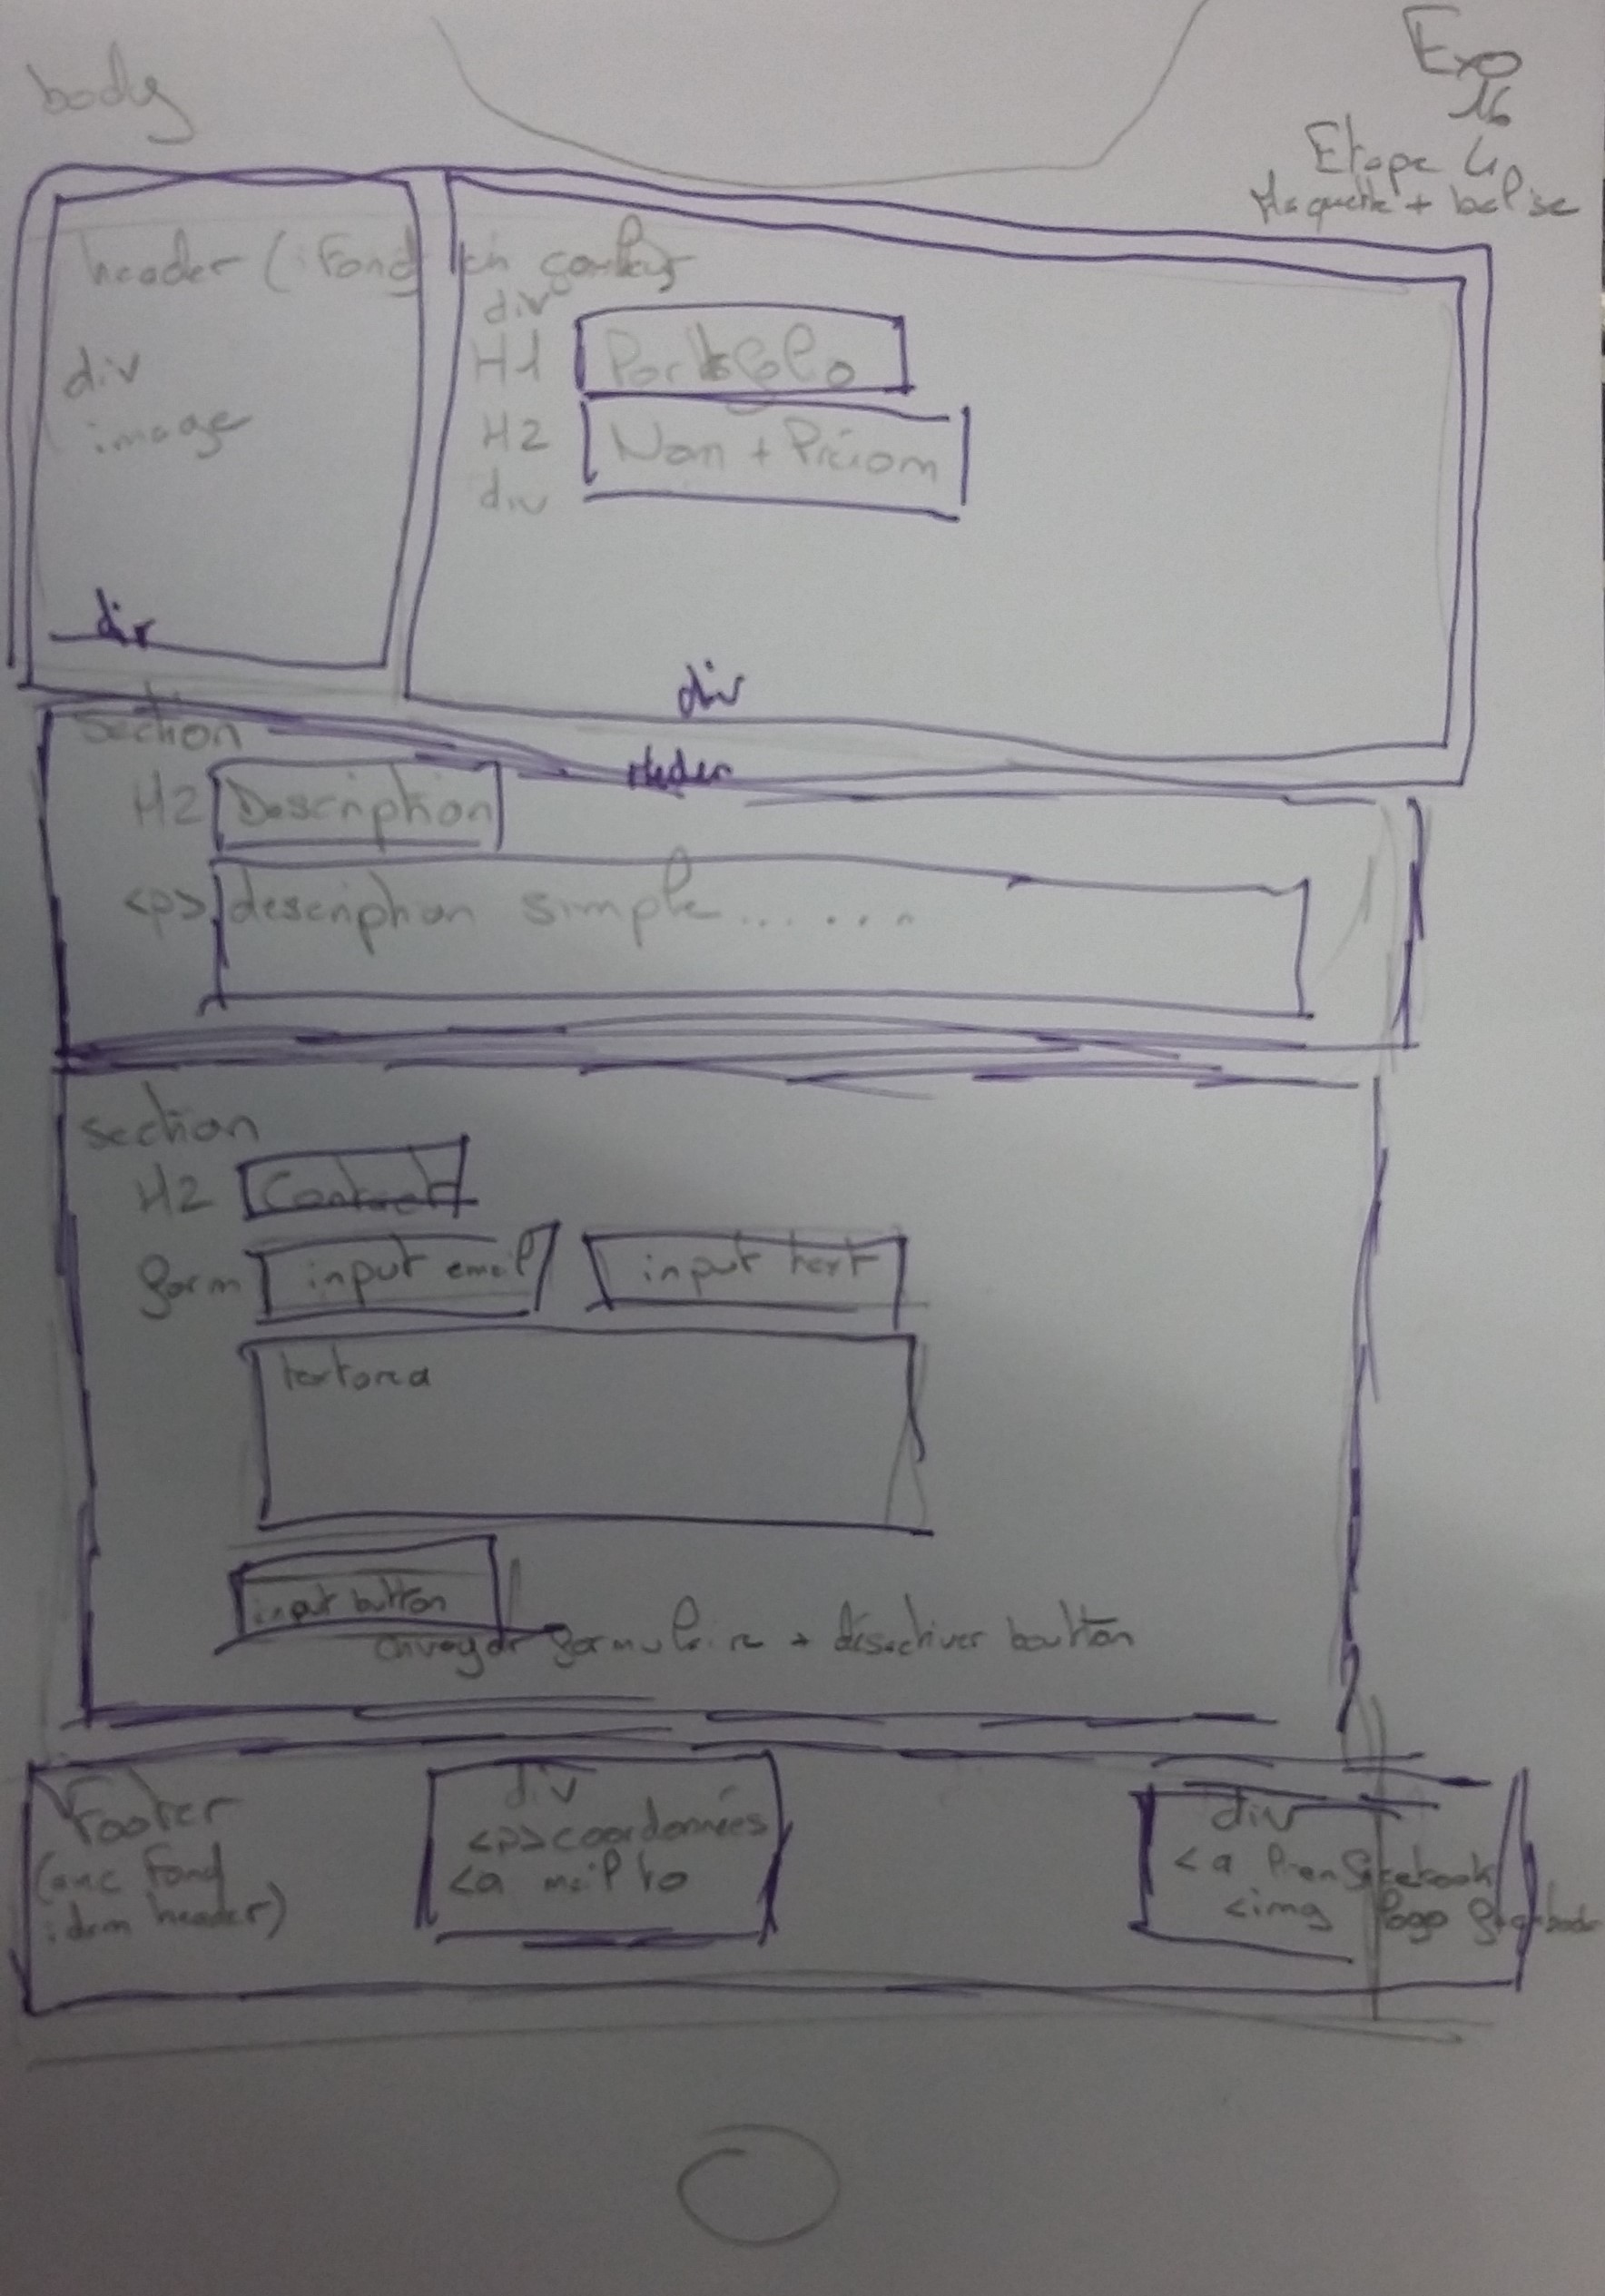 body
Exo
16
Etape 4
Maquette + balise
header (Fond en couleur
div
image
div
div
H1 Portfolio
H2 Nom + Prénom
div
div
Header
section
H2 Description
<p> description simple......
section
H2 Contact
form input email input text
textarea
input button
envoyer formulaire + désactiver boutton
Footer
(avec fond
idem header)
div
<p> coordonnées
<a mailto
div
<a lien facebook
<img logo facebook